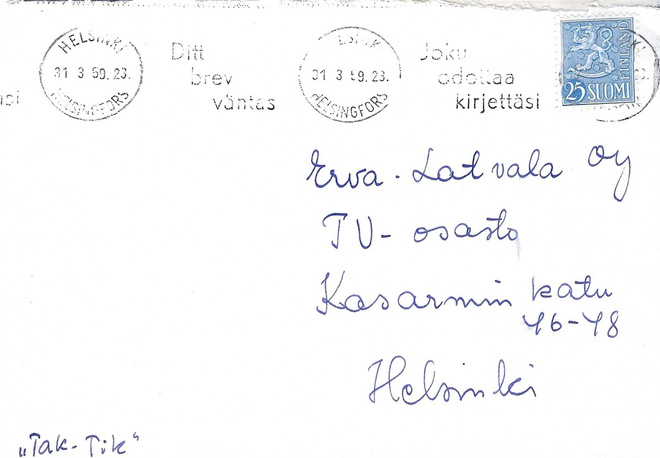 HELSINKI
31 3 59.23.
HELSINGFORS
Ditt
brev
väntas
31 3 59.23.
HELSINGFORS
Joku
odottaa
kirjettäsi
FINLAND
25 SUOMI
Erva-Latvala Oy
TV-osasto
Kasarmin katu
46-48
Helsinki
„Tak-Tik"